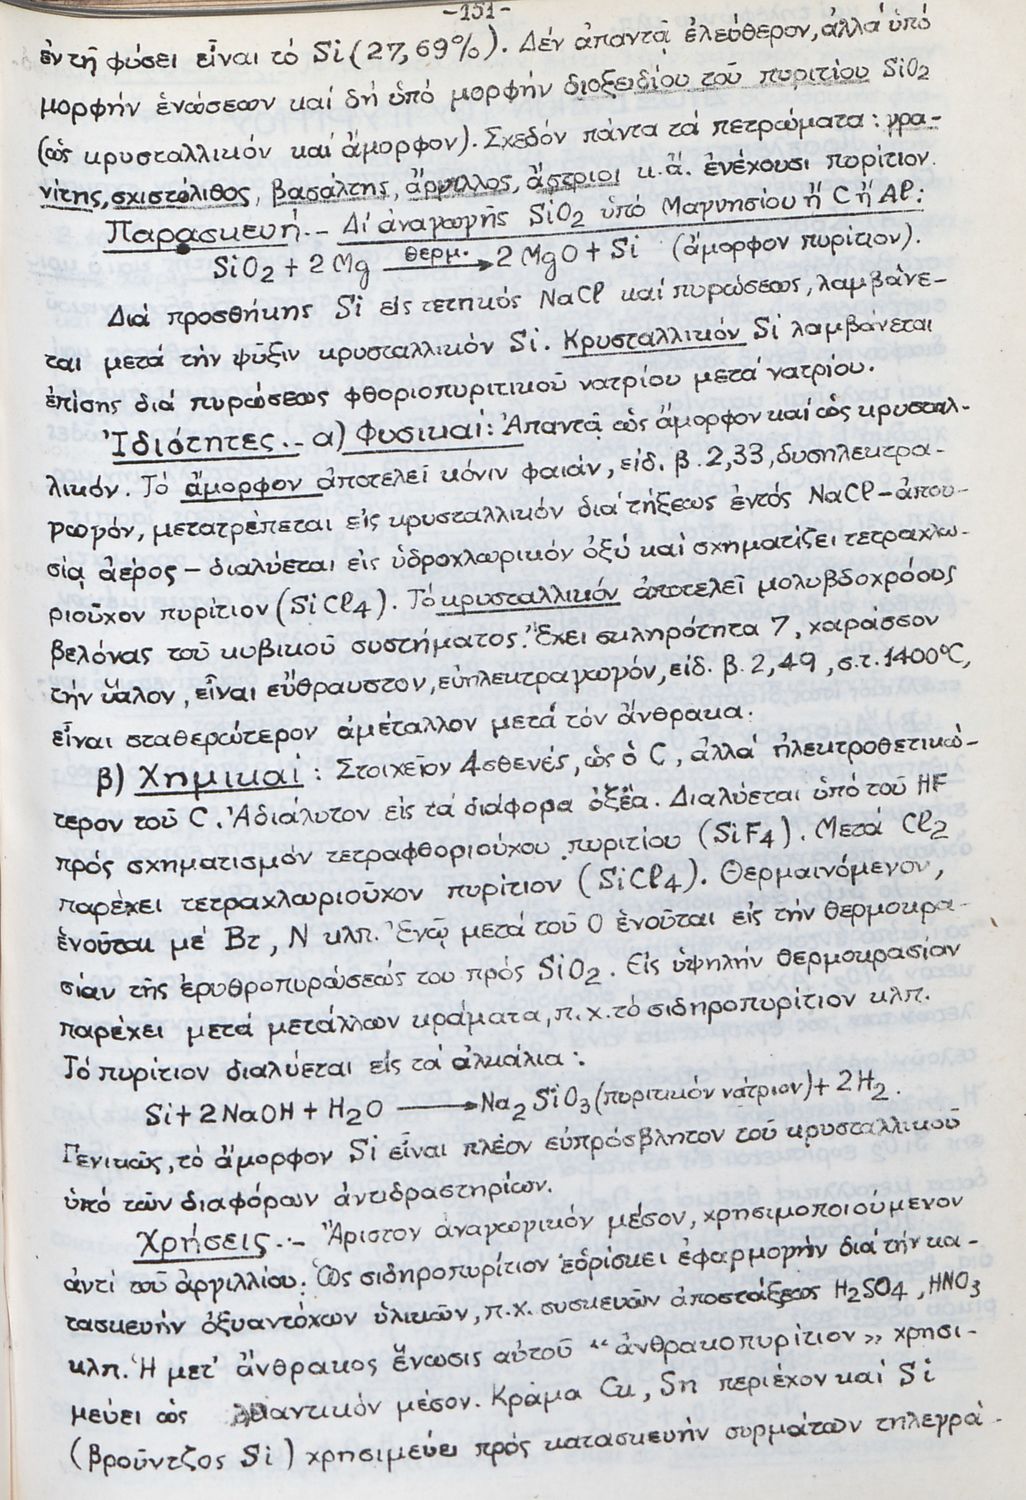 -151-
ἐν τῇ φύσει εἶναι τό Si (27,69%). Δέν ἀπαντᾷ ἐλεύθερον, ἀλλά ὑπό
μορφήν ἑνώσεων καί δή ὑπό μορφήν διοξειδίου τοῦ πυριτίου SiO₂
(ὡς κρυσταλλικόν καί ἄμορφον). Σχεδόν πάντα τά πετρώματα: γρα-
νίτης, σχιστόλιθος, βασάλτης, ἄργιλλος, ἄστριοι κ.ἄ. ἐνέχουσι πυρίτιον.
Παρασκευή.- Δι' ἀναγωγῆς SiO₂ ὑπό Μαγνησίου ἤ C ἤ Al:
SiO₂ + 2Mg θερμ. ⟶ 2MgO + Si (ἄμορφον πυρίτιον).
Διά προσθήκης Si εἰς τετηκός NaCl καί πυρώσεως, λαμβάνε-
ται μετά τήν ψῦξιν κρυσταλλικόν Si. Κρυσταλλικόν Si λαμβάνεται
ἐπίσης διά πυρώσεως φθοριοπυριτικοῦ νατρίου μετά νατρίου.
Ἰδιότητες.- α) Φυσικαί: Ἀπαντᾷ ὡς ἄμορφον καί ὡς κρυσταλ-
λικόν. Τό ἄμορφον ἀποτελεῖ κόνιν φαιάν, εἰδ. β. 2,33, δυσηλεκτρα-
γωγόν, μετατρέπεται εἰς κρυσταλλικόν διά τήξεως ἐντός NaCl - ἀπου-
σίᾳ ἀέρος - διαλύεται εἰς ὑδροχλωρικόν ὀξύ καί σχηματίζει τετραχλω-
ριοῦχον πυρίτιον (SiCl₄). Τό κρυσταλλικόν ἀποτελεῖ μολυβδοχρόους
βελόνας τοῦ κυβικοῦ συστήματος. Ἔχει σκληρότητα 7, χαράσσον
τήν ὕαλον, εἶναι εὔθραυστον, εὐηλεκτραγωγόν, εἰδ. β. 2,49, σ.τ. 1400°C,
εἶναι σταθερώτερον ἀμέταλλον μετά τόν ἄνθρακα.
β) Χημικαί: Στοιχεῖον 4σθενές, ὡς ὁ C, ἀλλά ἠλεκτροθετικώ-
τερον τοῦ C. Ἀδιάλυτον εἰς τά διάφορα ὀξέα. Διαλύεται ὑπό τοῦ HF
πρός σχηματισμόν τετραφθοριούχου πυριτίου (SiF₄). Μετά Cl₂
παρέχει τετραχλωριοῦχον πυρίτιον (SiCl₄). Θερμαινόμενον,
ἑνοῦται μέ Br, N κλπ. Ἐνῷ μετά τοῦ O ἑνοῦται εἰς τήν θερμοκρα-
σίαν τῆς ἐρυθροπυρώσεώς του πρός SiO₂. Εἰς ὑψηλήν θερμοκρασίαν
παρέχει μετά μετάλλων κράματα, π.χ. τό σιδηροπυρίτιον κλπ.
Τό πυρίτιον διαλύεται εἰς τά ἀλκάλια:
Si + 2NaOH + H₂O ⟶ Na₂SiO₃ (πυριτικόν νάτριον) + 2H₂.
Γενικῶς, τό ἄμορφον Si εἶναι πλέον εὐπρόσβλητον τοῦ κρυσταλλικοῦ
ὑπό τῶν διαφόρων ἀντιδραστηρίων.
Χρήσεις.- Ἄριστον ἀναγωγικόν μέσον, χρησιμοποιούμενον
ἀντί τοῦ ἀργιλλίου. Ὡς σιδηροπυρίτιον εὑρίσκει ἐφαρμογήν διά τήν κα-
τασκευήν ὀξυαντόχων ὑλικῶν, π.χ. συσκευῶν ἀποστάξεως H₂SO₄, HNO₃
κλπ. Ἡ μετ' ἄνθρακος ἕνωσις αὐτοῦ "ἀνθρακοπυρίτιον» χρησι-
μεύει ὡς λειαντικόν μέσον. Κρᾶμα Cu, Sn περιέχον καί Si
(βροῦντζος Si) χρησιμεύει πρός κατασκευήν συρμάτων τηλεγρά-